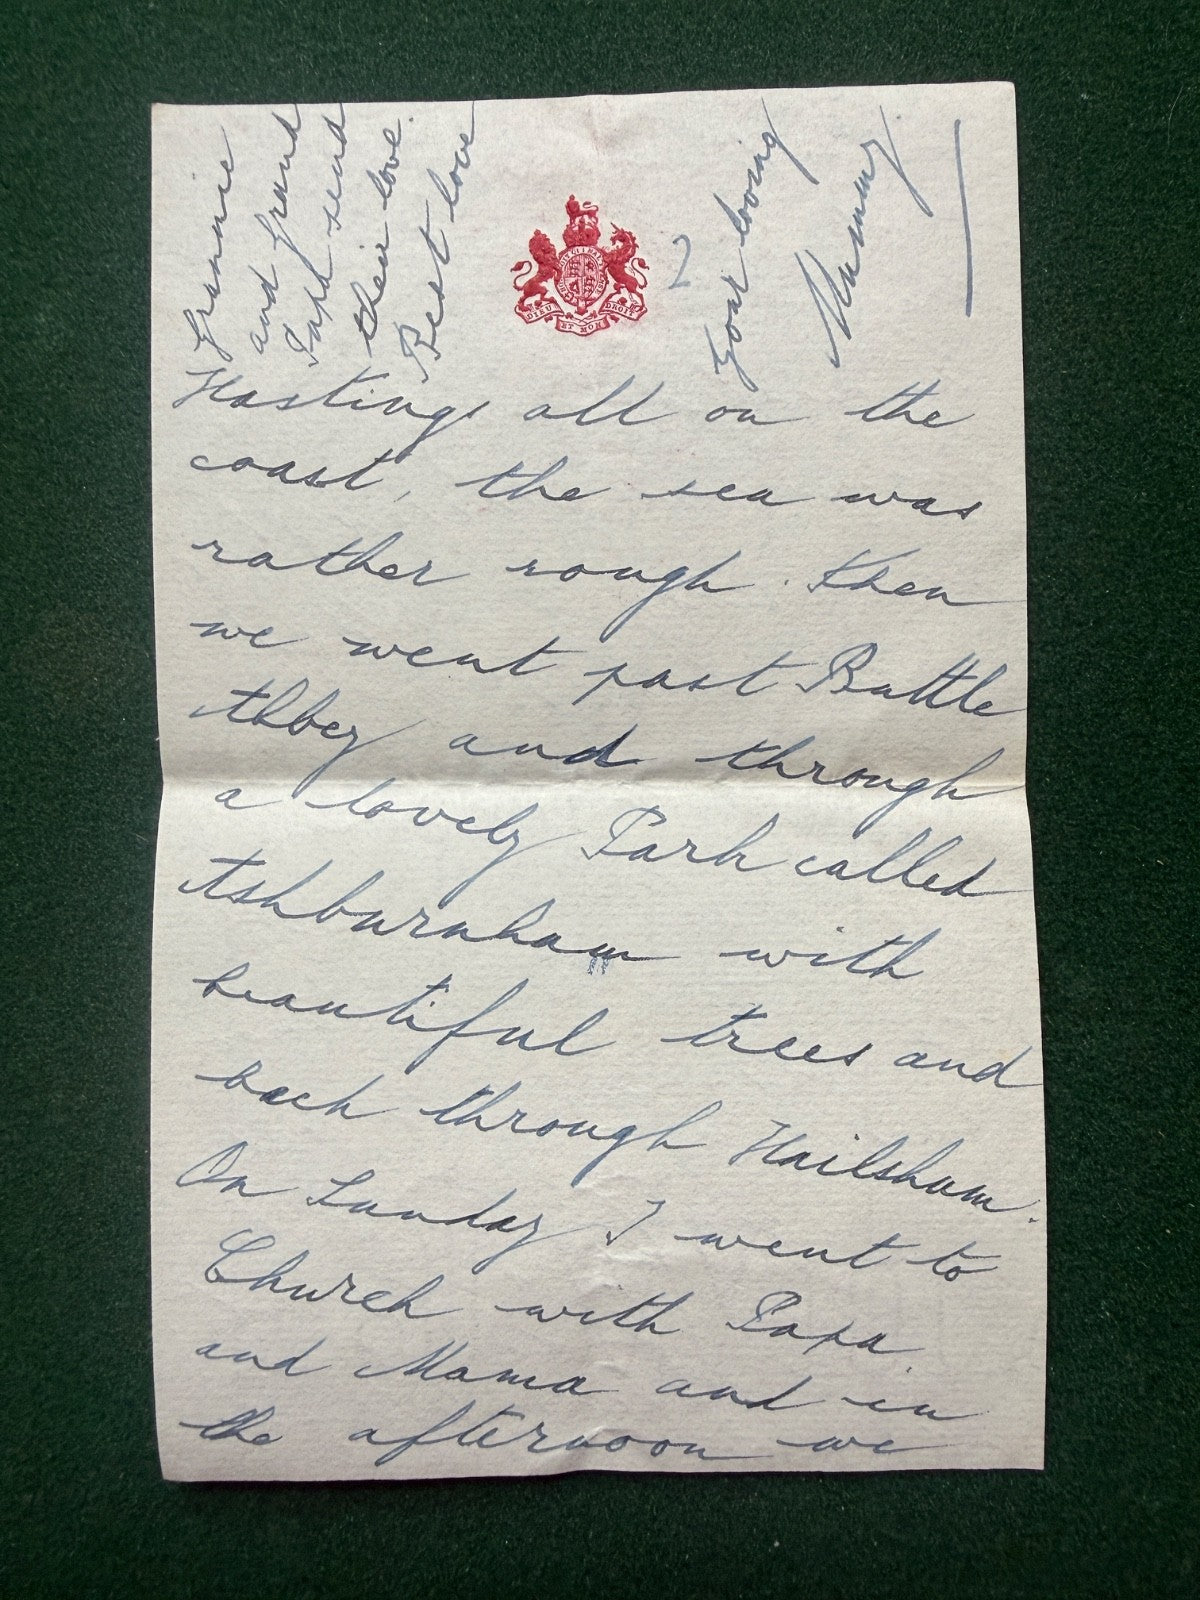 Grannie
and Grand
Papa send
their love.
Best love
DIEU ET MON DROIT
2
Your loving
Mummy
Hastings all on the
coast, the sea was
rather rough. Then
we went past Battle
Abbey and through
a lovely Park called
Ashburnham with
beautiful trees and
back through Hailsham.
On Sunday I went to
Church with Papa
and Mama and in
the afternoon we